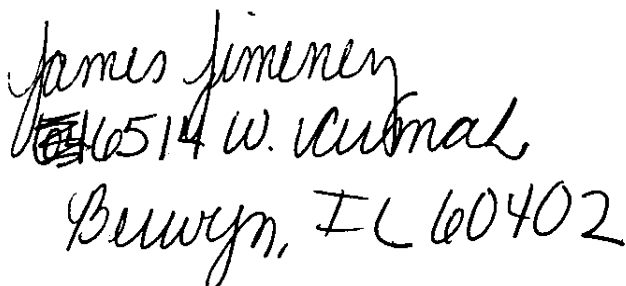 James Jimenez
6514 W. 
Berwyn, IL 60402